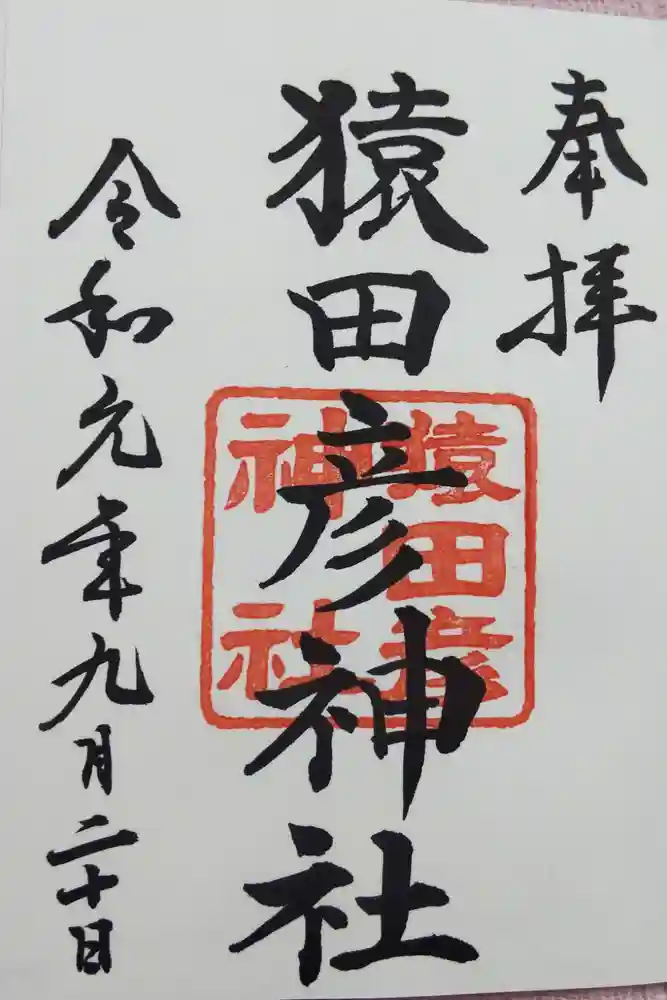 奉拝
猿田彦神社
猿田彦
神社
令和元年九月二十日